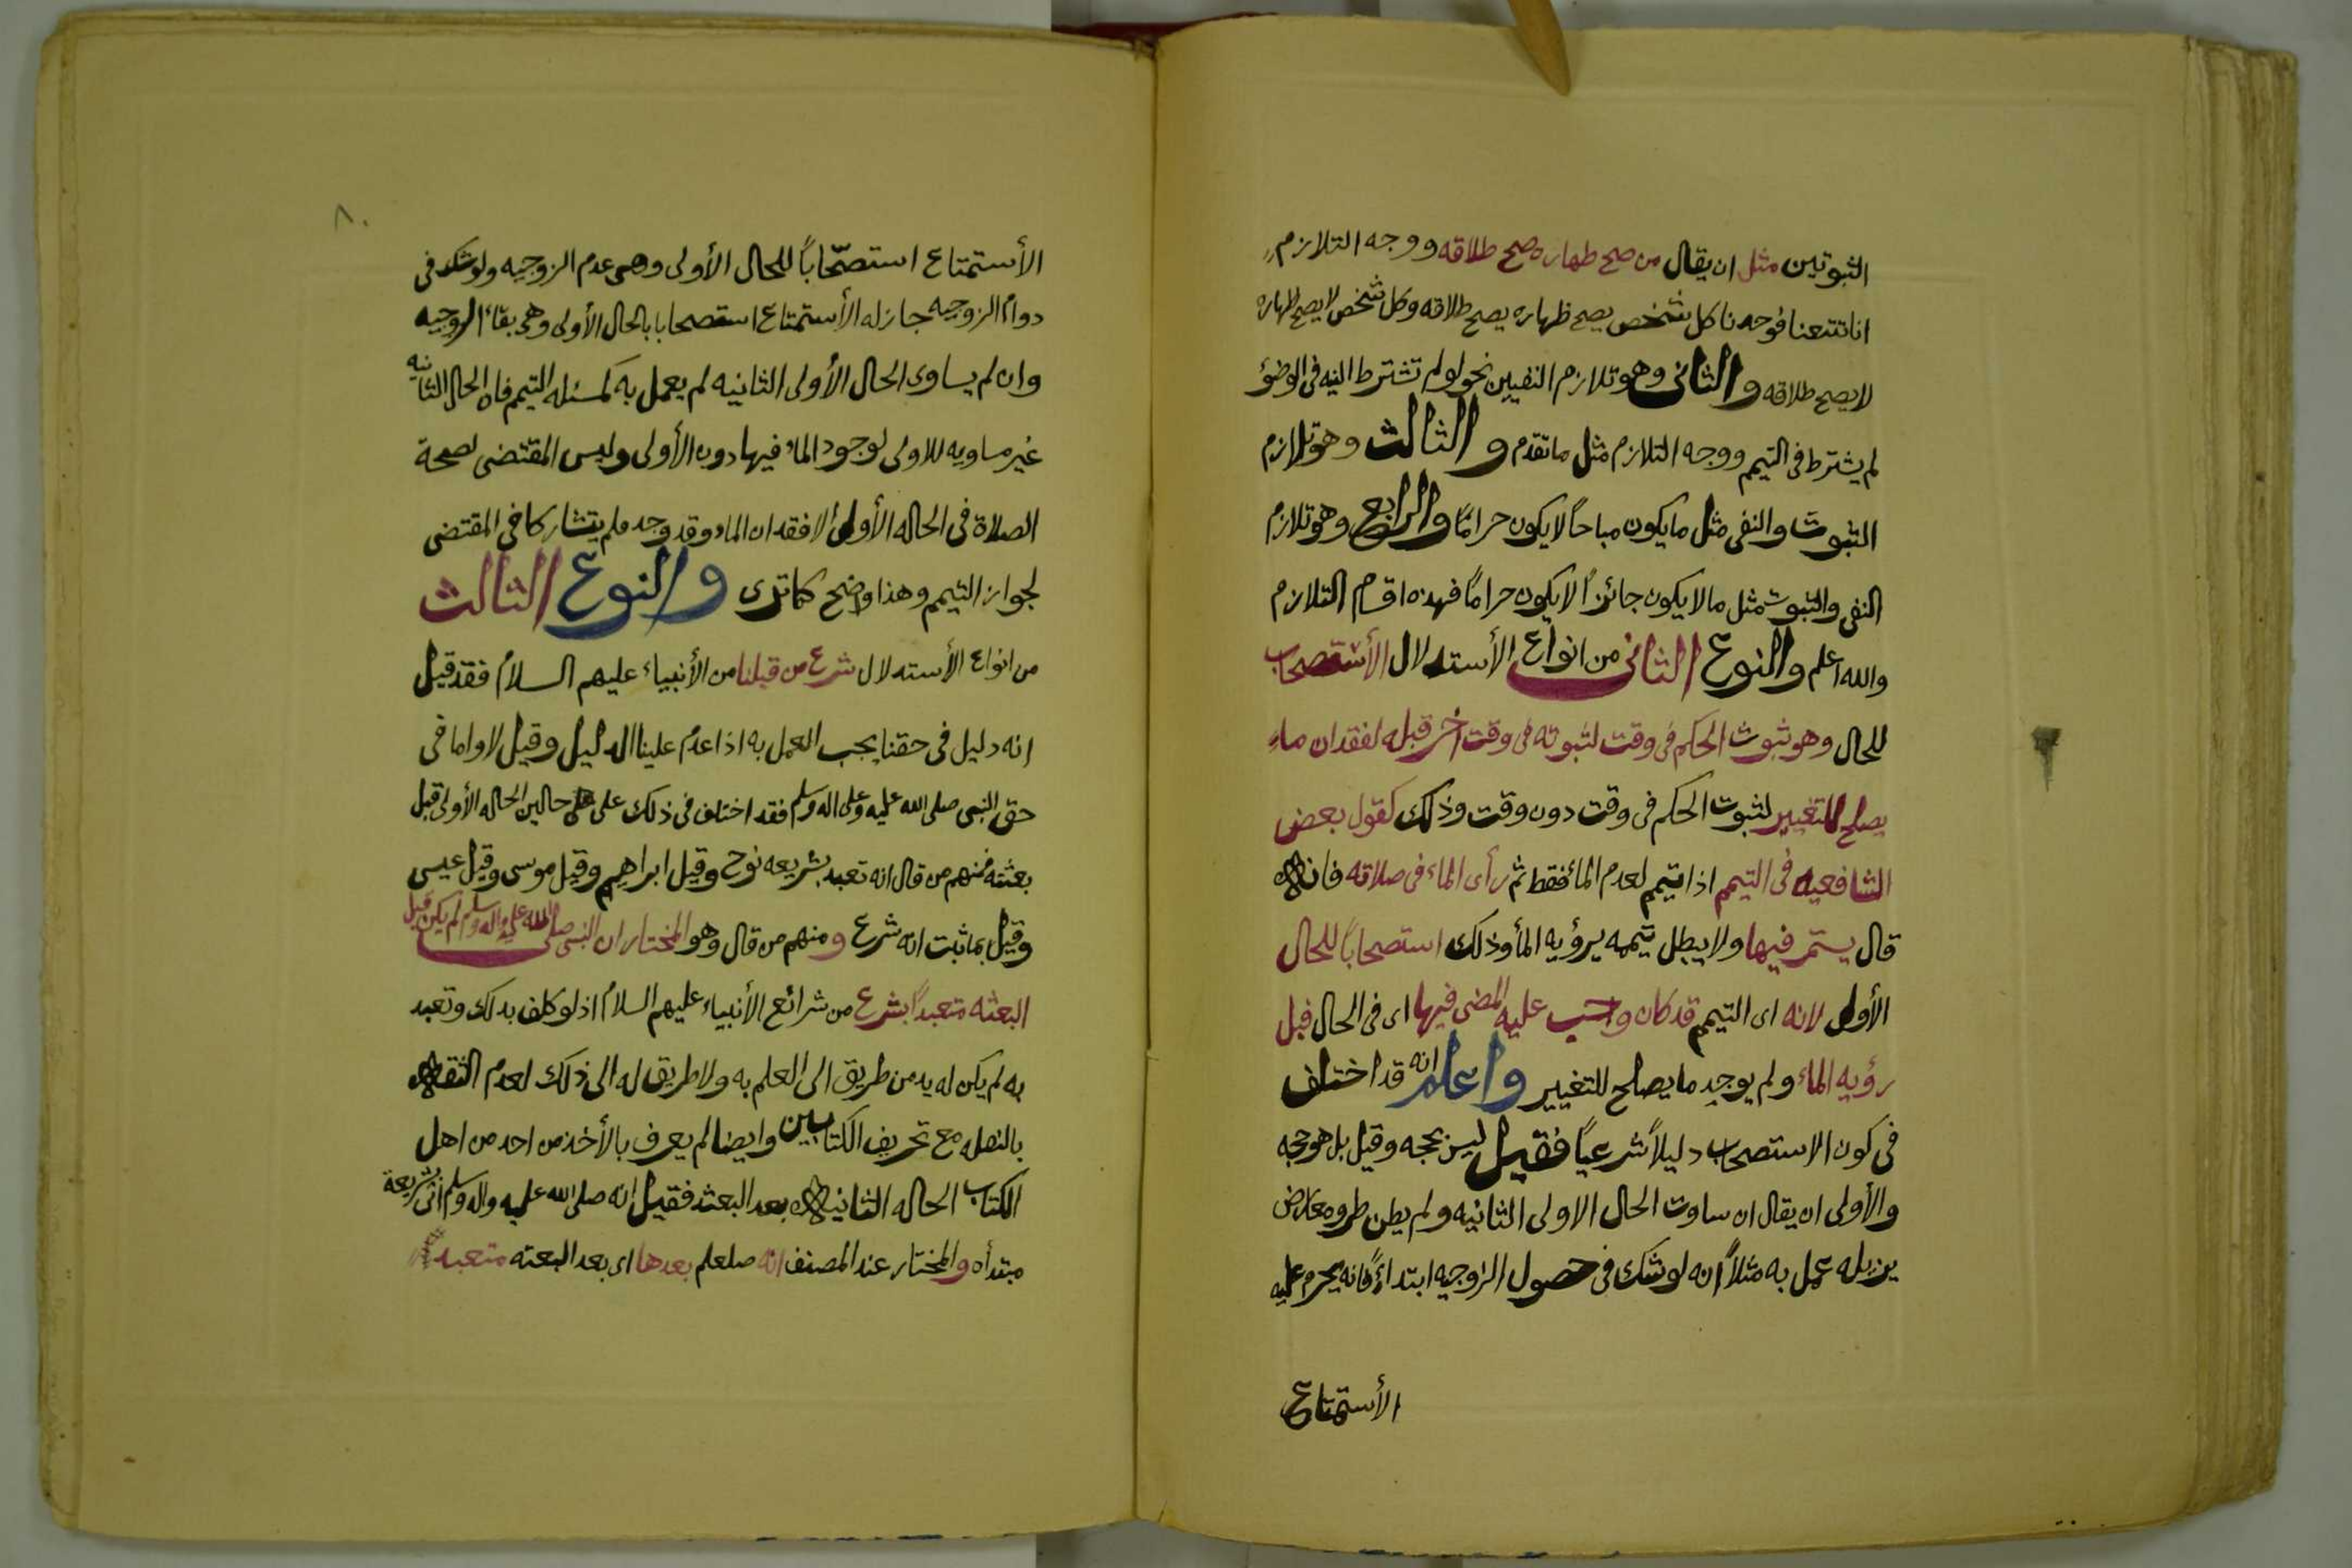 الثبوتين مثل ان يقال من صح طهاره صح طلاقه ووجه التلازم
انا تتبعنا فوجدنا كل شخص يصح ظهاره يصح طلاقه وكل شخص لا يصح ظهاره
لا يصح طلاقه والثانى وهو تلازم النفيين نحو لو لم تشترط النيه فى الوضؤ
لم يشترط فى التيمم ووجه التلازم مثل ما تقدم والثالث وهو تلازم
الثبوت والنفى مثل ما يكون مباحاً لا يكون حراماً والرابع وهو تلازم
النفى والثبوت مثل ما لا يكون جائزاً لا يكون حراماً فهذه اقسام التلازم
والله اعلم والنوع الثانى من انواع الأستدلال الأستصحاب
للحال وهو ثبوت الحكم فى وقت لثبوته فى وقت اخر قبله لفقدان ماء
يصلح للتغيير لثبوت الحكم فى وقت دون وقت وذلك كقول بعض
الشافعيه فى التيمم اذا تيمم لعدم الماء فقط ثم رأى الماء فى صلاته فانه
قال يستمر فيها ولا يبطل تيممه برؤيه الماء وذلك استصحاباً للحال
الأولى لانه اى التيمم قد كان واجب عليه المضى فيها اى فى الحال قبل
رؤيه الماء ولم يوجد ما يصلح للتغيير واعلم انه قد اختلف
فى كون الاستصحاب دليلاً شرعياً فقيل ليس بحجه وقيل بل هو حجه
والأولى ان يقال ان ساوت الحال الاولى الثانيه ولم يظن طروء معارض
يزيله عمل به مثلاً انه لو شك فى حصول الزوجيه ابتداءً فانه يحرم عليه
الأستمتاع
٨٠
الأستمتاع استصحاباً للحال الأولى وهى عدم الزوجيه ولو شك فى
دوام الزوجيه جاز له الأستمتاع استصحابا بالحال الأولى وهى بقاء الزوجيه
وان لم يساوى الحال الأولى الثانيه لم يعمل به كمسئله التيمم فان الحال الثانيه
غير مساويه للاولى لوجود الماء فيها دون الأولى وليس المقتضى لصحة
الصلاة فى الحاله الأولى الا فقدان الماء وقد وجد فلم يتشاركا فى المقتضى
لجواز التيمم وهذا واضح كما ترى والنوع الثالث
من انواع الأستدلال شرع من قبلنا من الأنبياء عليهم السلام فقد قيل
انه دليل فى حقنا يجب العمل به اذا عدم علينا الدليل وقيل لا واما فى
حق النبى صلى الله عليه وعلى اله وسلم فقد اختلف فى ذلك على حالين الحاله الأولى قبل
بعثته فمنهم من قال انه تعبد بشريعه نوح وقيل ابراهيم وقيل موسى وقيل عيسى
وقيل بما ثبت انه شرع ومنهم من قال وهو المختار ان النبى صلى الله عليه واله وسلم لم يكن قبل
البعثه متعبداً بشرع من شرائع الأنبياء عليهم السلام اذ لو كلف بذلك وتعبد
به لم يكن له بد من طريق الى العلم به ولا طريق له الى ذلك لعدم الثقه
بالنقله مع تحريف الكتابين وايضا لم يعرف بالأخذ من احد من اهل
الكتاب الحاله الثانيه بعد البعثه فقيل انه صلى الله عليه واله وسلم اتى شريعة
مبتدأه والمختار عند المصنف انه صلعلم بعدها اى بعد البعثه متعبد